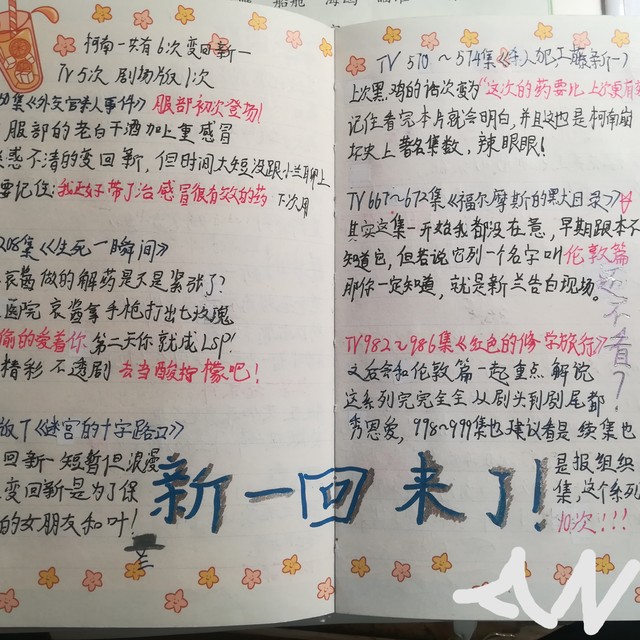 柯南一共有6次变回新一
TV5次 剧场版1次
集《外交官杀人事件》服部初次登场!
服部的老白干酒加上重感冒
惑不清的变回新,但时间太短没跟小兰聊上
要记住:我还好带了治感冒很有效的药 下次用
集《生死一瞬间》
哀酱做的解药是不是紧张了?
医院哀酱拿手枪打出七玫瑰
偷的爱着你 第二天你就成LSP!
精彩不透剧 去当酸拧檬吧!
版T《迷宫的十字路口》
回新一短暂但浪漫
变回新是为了保
的女朋友和叶!
新一回来了!
TV 570~574集《杀人犯工藤新一》
上次黑鸡的诺次变“这次的药要比上次更有效
记住看完本片就会明白,并且这也是柯南崩
坏史上著名集数,辣眼眼!
TV667~672集《福尔摩斯的默犬日录》
其实这集一开始我都没在意,早期跟本不
知道它,但若说它列一个名字叫伦敦篇
那你一定知道,就是新兰告白现场。
还不看?
TV982~986集《红色的修学旅行》
又后会和伦敦篇一起重点解说
这系列完完全全从剧头到剧尾都
秀恩爱,998~999集也建议看是续集也
是报组织
集,这个系列
10次!!!